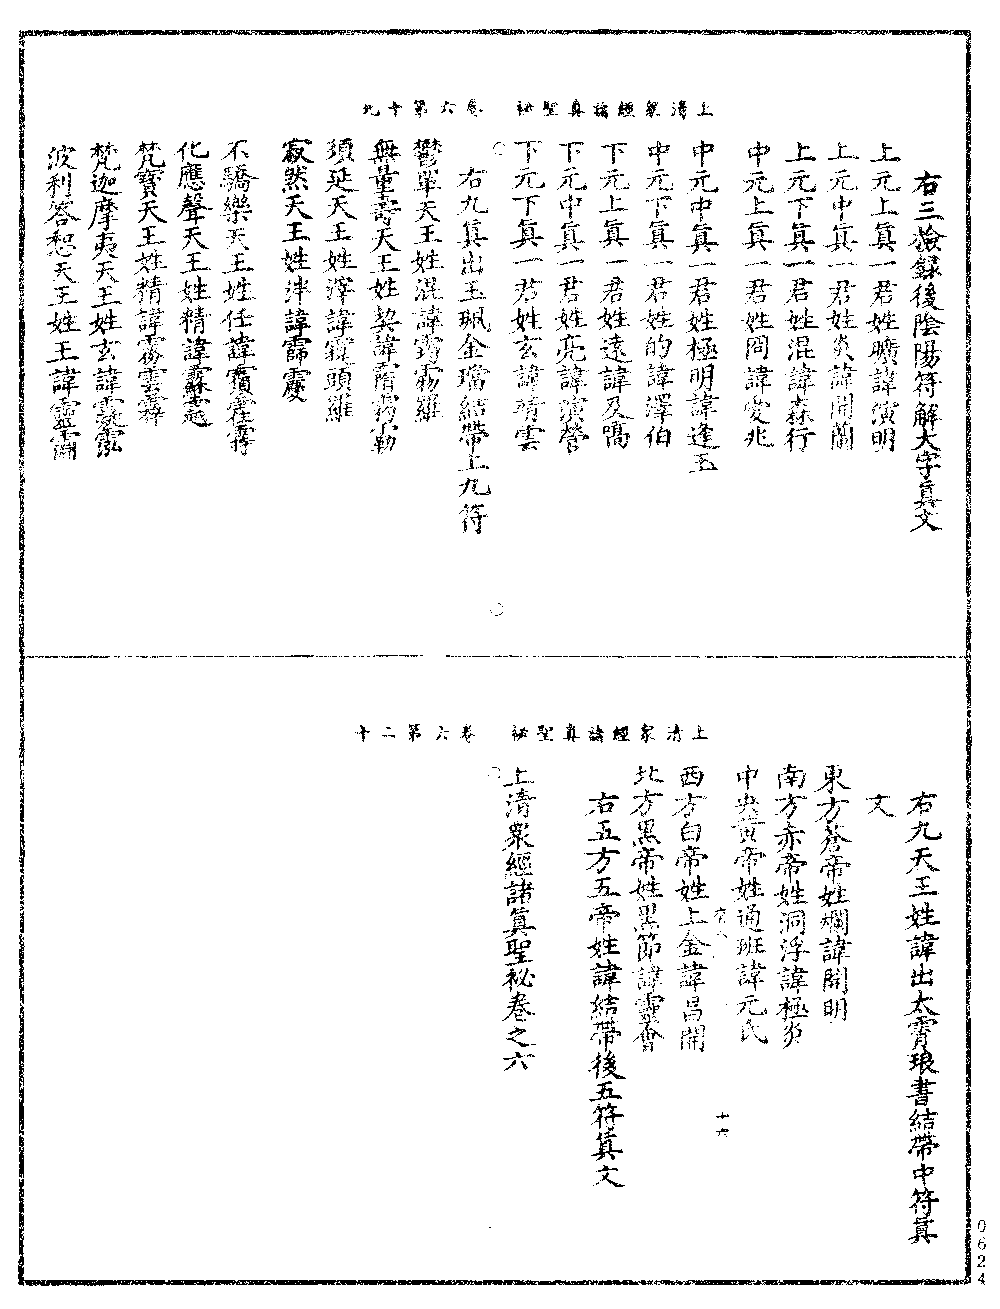 上清眾經諸真聖祕　卷六第十九
右三撿録後陰陽符解大字真文
上元上真一君姓曠諱演明
上元中真一君姓炎諱開蘭
上元下真一君姓混諱森行
中元上真一君姓罔諱愛兆
中元中真一君姓極明諱逢玉
中元下真一君姓的諱澤伯
下元上真一君姓遠諱及
下元中真一君姓亮諱演營
下元下真一君姓玄諱晴雲
右九真出玉珮金璫結帶上九符
鬱單天王姓混諱霧羅
無量壽天王姓契諱勒
須延天王姓滓諱頭羅
寂然天王姓泮諱
不驕樂天王姓任諱
化應聲天王姓精諱
梵寶天王姓精諱雲
梵迦摩夷天王姓玄諱
波利答恕天王姓王諱
上清眾經諸真聖祕　卷六第二十
右九天王姓諱出太霄琅書結帶中符真
文
東方蒼帝姓爛諱開明
南方赤帝姓洞浮諱極炎
中央黃帝姓通班諱元氏
西方白帝姓上金諱昌開
北方黑帝姓黑節諱靈會
右五方五帝姓諱結帶後五符真文
上清眾經諸真聖祕卷之六
十六
0624